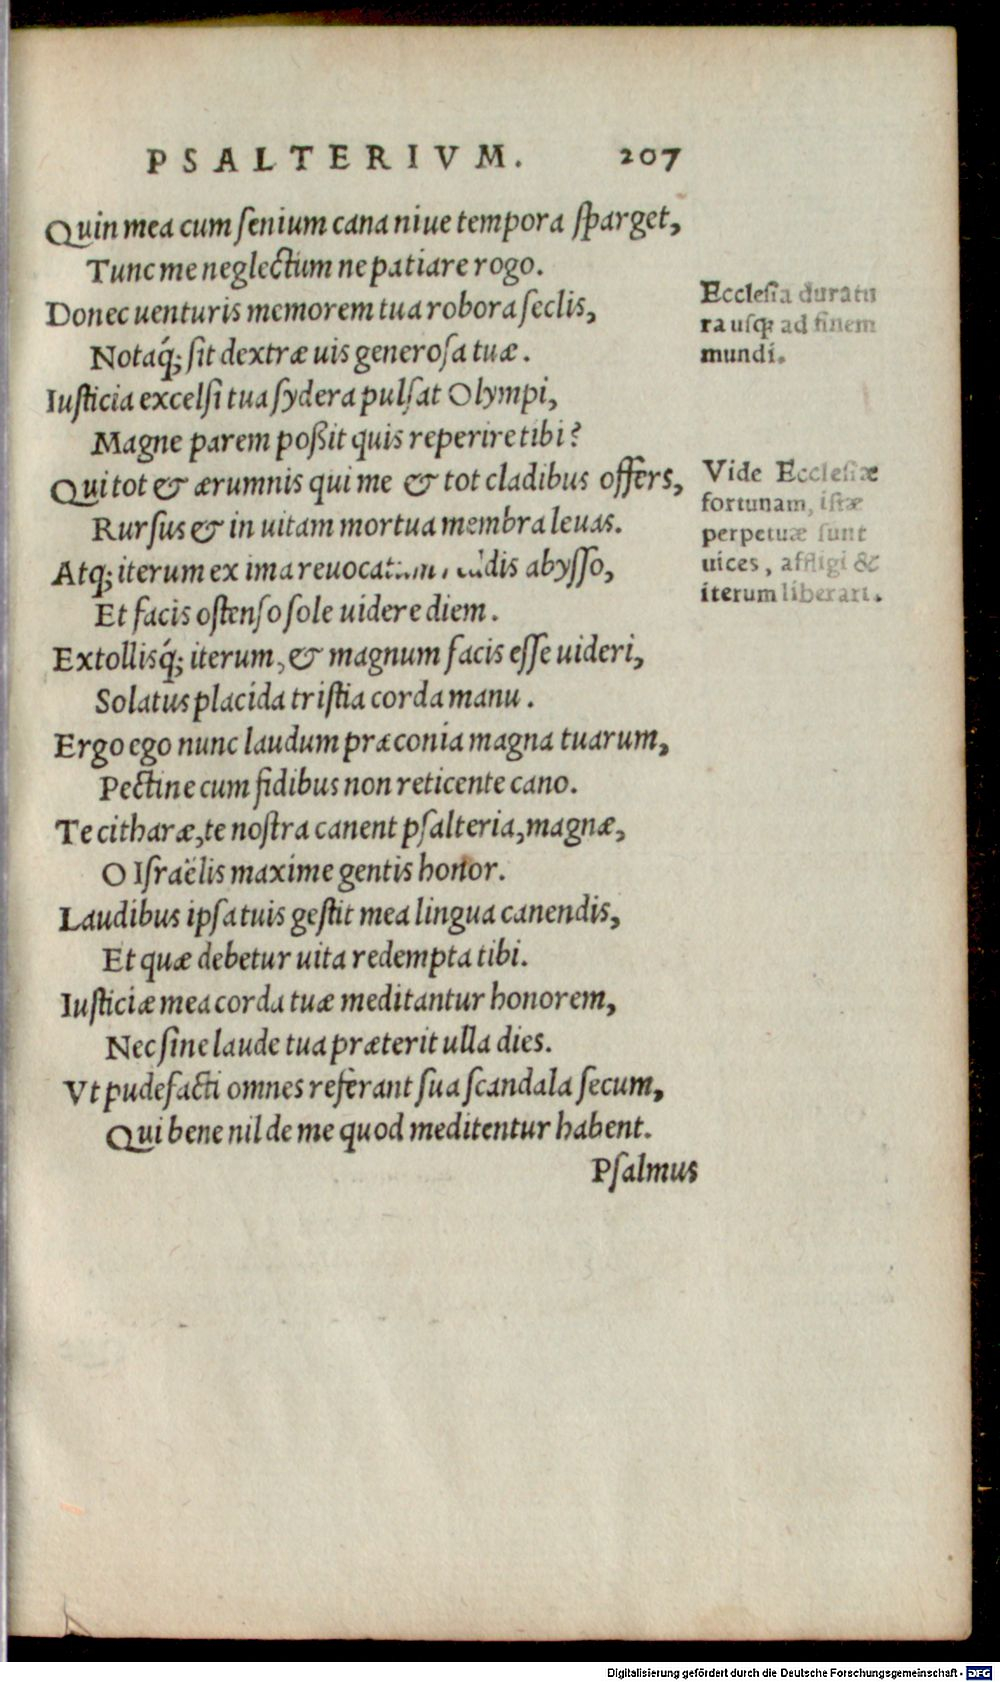 PSALTERIVM. 207
Quin mea cum ſenium cana niue tempora ſparget,
Tunc me neglectum ne patiare rogo.
Donec uenturis memorem tua robora ſeclis,
Notaq́; ſit dextræ uis generoſa tuæ.
Iuſticia excelſi tua ſydera pulſat Olympi,
Magne parem poßit quis reperire tibi?
Qui tot & ærumnis qui me & tot cladibus offers,
Rurſus & in uitam mortua membra leuas.
Atq; iterum ex ima reuocatum abyſſo,
Et facis oſtenſo ſole uidere diem.
Extollisq́; iterum, & magnum facis eſſe uideri,
Solatus placida triſtia corda manu.
Ergo ego nunc laudum præconia magna tuarum,
Pectine cum fidibus non reticente cano.
Te citharæ, te noſtra canent pſalteria, magnæ,
O Iſraëlis maxime gentis honor.
Laudibus ipſa tuis geſtit mea lingua canendis,
Et quæ debetur uita redempta tibi.
Iuſticiæ mea corda tuæ meditantur honorem,
Nec ſine laude tua præterit ulla dies.
Vt pudefacti omnes referant ſua ſcandala ſecum,
Qui bene nil de me quod meditentur habent.
Pſalmus
Eccleſia duratu
ra uſq; ad finem
mundi.
Vide Eccleſiæ
fortunam, iſtæ
perpetuæ ſunt
uices, affligi &
iterum liberari.
Digitalisierung gefördert durch die Deutsche Forschungsgemeinschaft - DFG